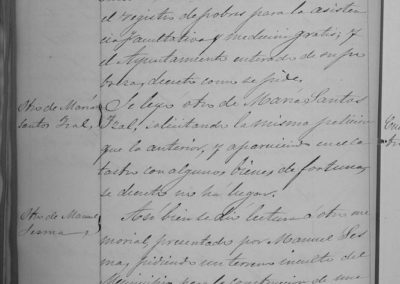 el registro de pobres para la asisten
cia facultativa y medicina gratis, y
el Ayuntamiento enterado de su po
breza, decreta como se pide.
Otro de María
Santos Tral,
Se leyo otro de María Santos
Tral, solicitando la misma peticion
que la anterior, y apareciendo en el ca
tastro con algunos bienes de fortuna,
se decreto no ha lugar.
Otro de Manuel
Sesma
Asi bien se dió lectura á otro me
morial, presentado por Manuel Ses
ma, pidiendo un terreno inculto del
Municipio para la construccion de una